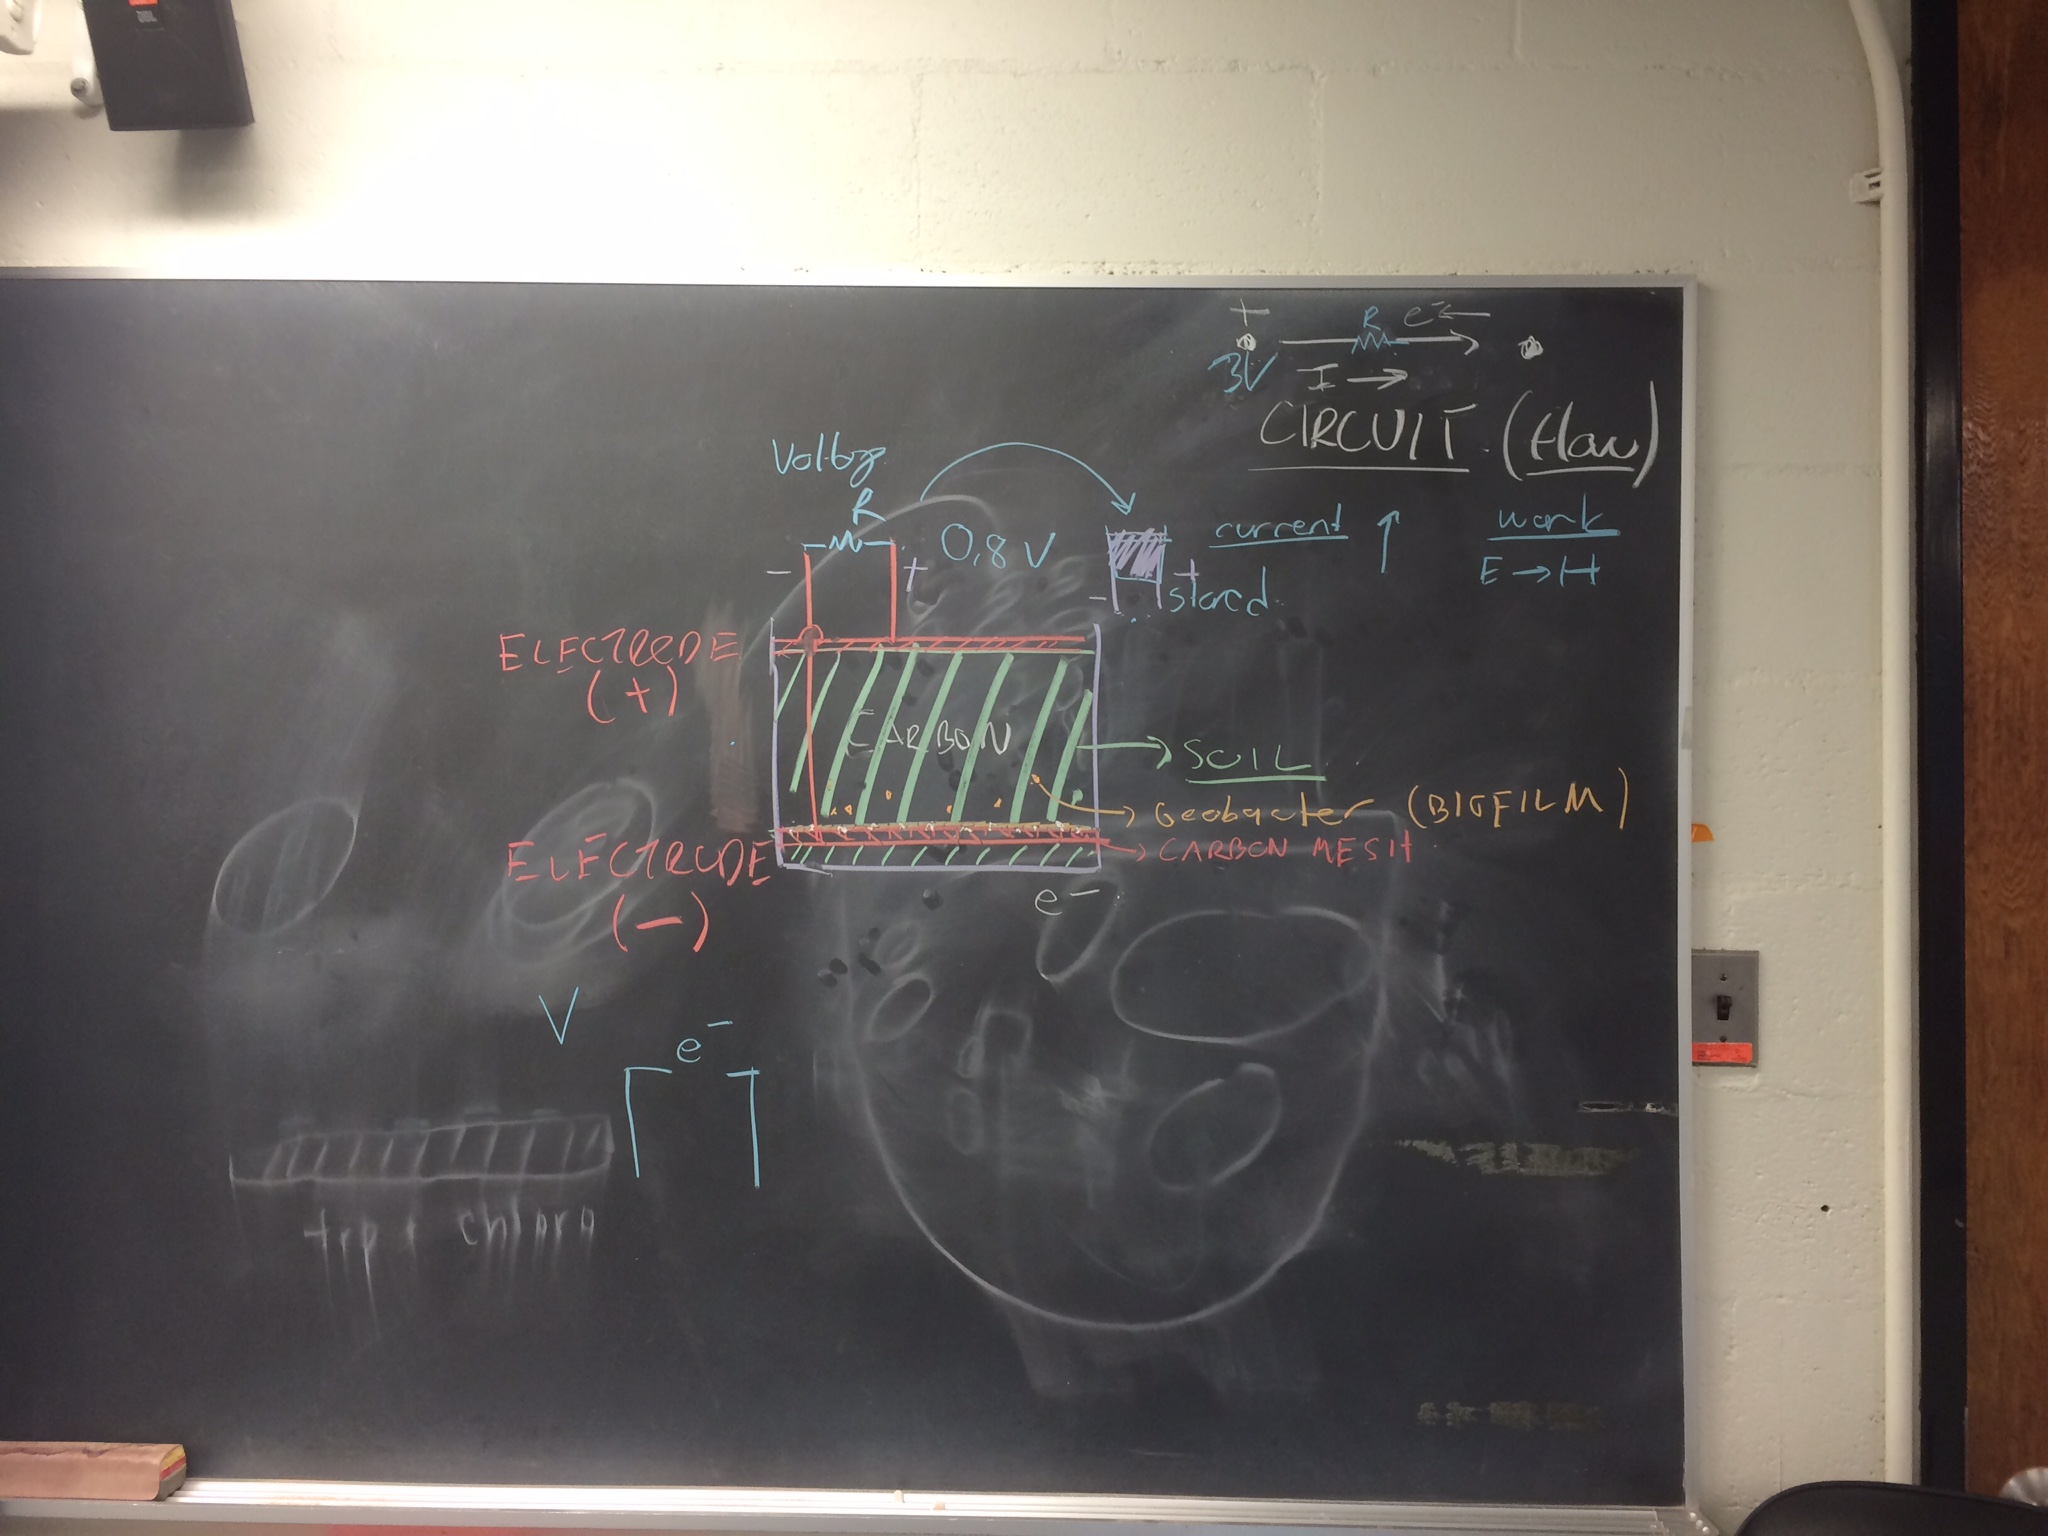 JBL
+ R e⁻ ←
3V I →
CIRCUIT (flow)
Voltage
R
- + 0,8 V
current ↑ work
+ stored E → H
-
ELECTRODE
(+)
CARBON
→ SOIL
→ Geobacter (BIOFILM)
ELECTRODE → CARBON MESH
(-)
e⁻
V
e⁻
trp + chlora